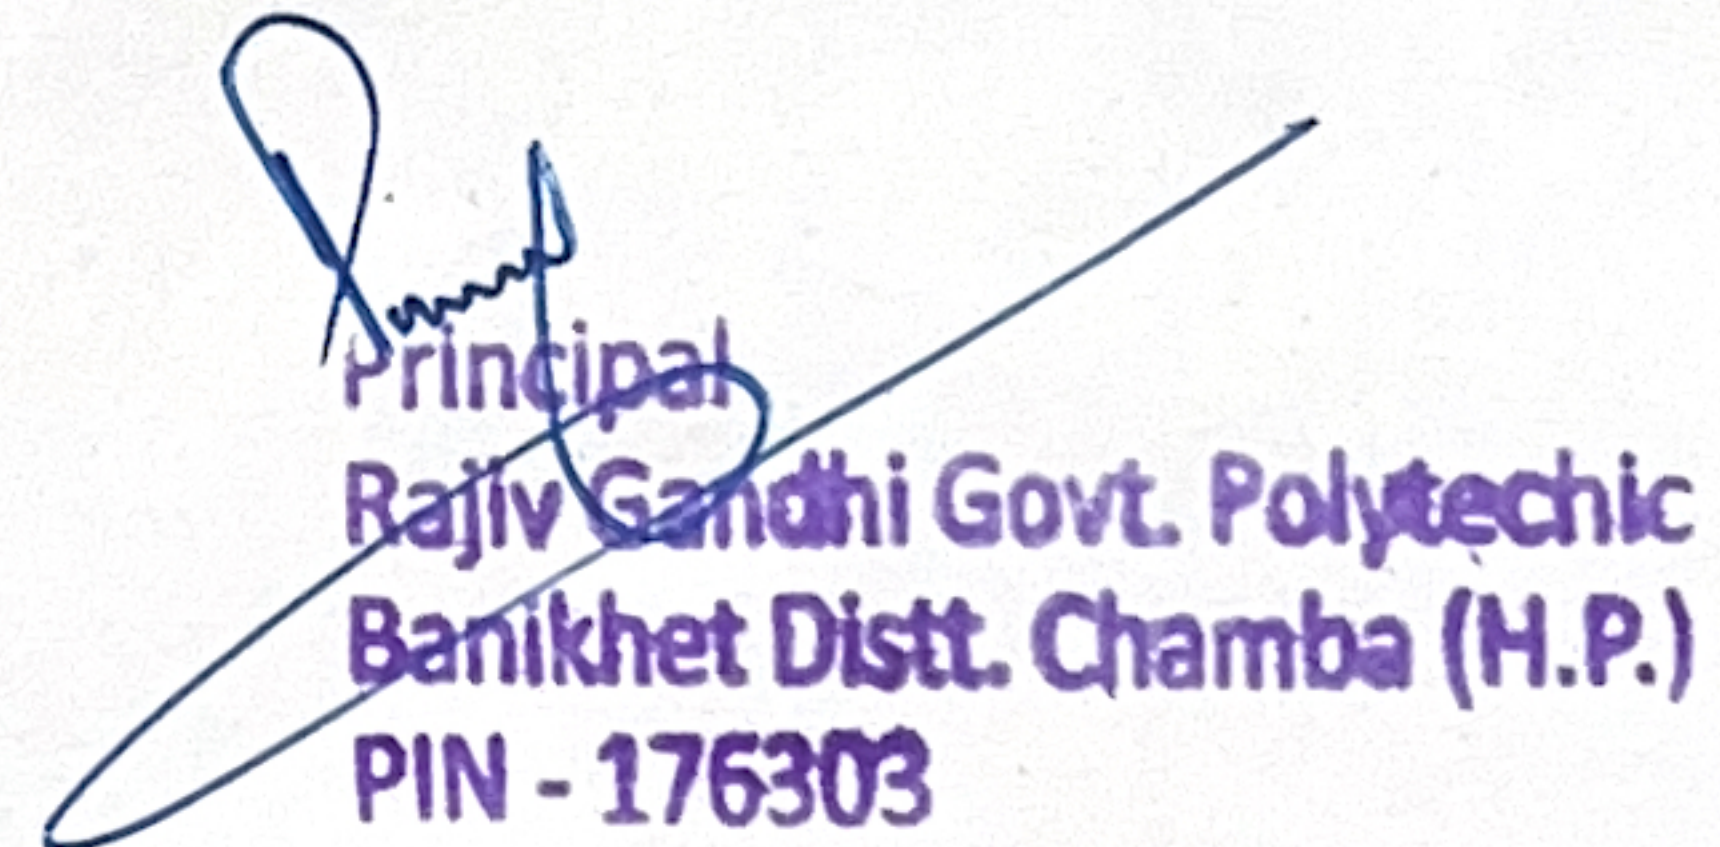 Principal
Rajiv Gandhi Govt. Polytechic
Banikhet Distt. Chamba (H.P.)
PIN - 176303